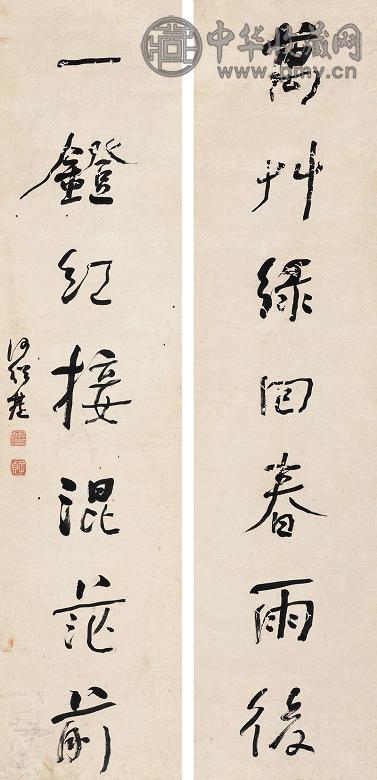 萬艸綠回春雨後
一鐙紅接混茫前
何紹基
中华收藏网
www.pmy.cn